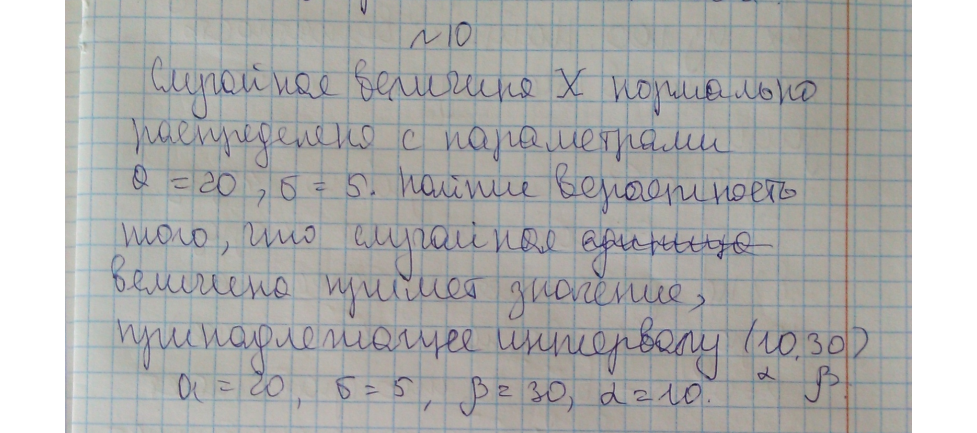 №10
Случайная величина X нормально
распределена с параметрами
a = 20, σ = 5. Найти вероятность
того, что случайная единица
величина примет значение,
принадлежащее интервалу (10,30)
α β
a = 20, σ = 5, β = 30, α = 10.